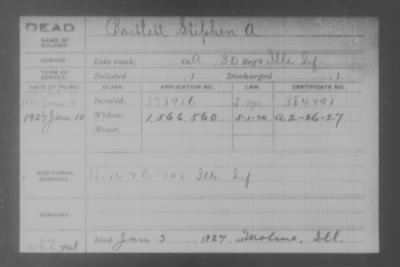 DEAD
Bartlett Stephen A
NAME OF
SOLDIER:
SERVICE:
Late rank, Co A, 80 Reg't Ills Inf
TERM OF
SERVICE:
Enlisted , 1 Discharged , 1
DATE OF FILING. CLASS. APPLICATION NO. LAW. CERTIFICATE NO.
Invalid, 384491
1927 Jan 10 Widow, 1,566,560 5-1-20 A 2-26-27
Minor,
ADDITIONAL
SERVICES:
Ills Inf
REMARKS:
Died Jan 3, 1927, at Moline, Ill.